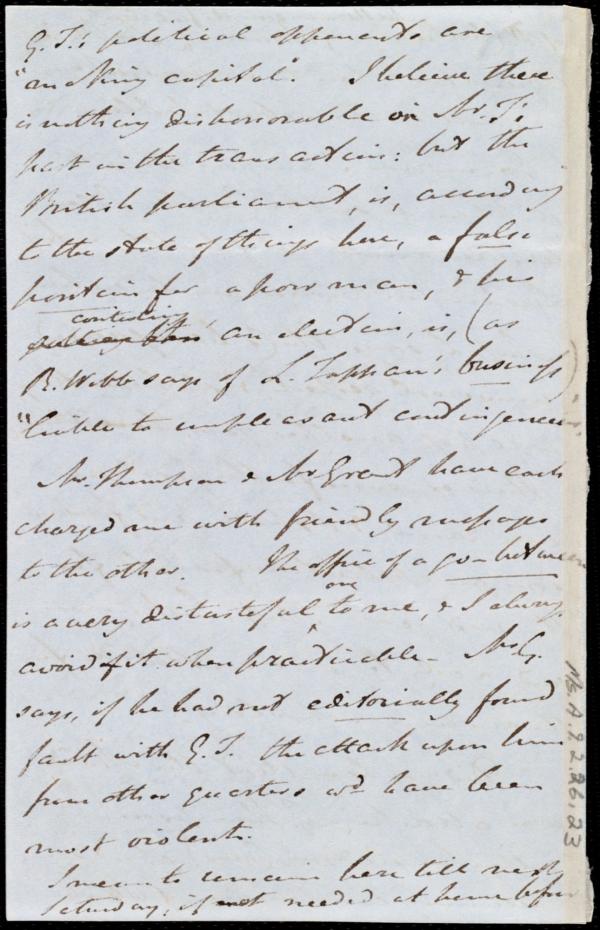 G. T.'s political opponents are
"making capital". I believe there
is nothing dishonorable on Mr. T.'s
part in the transaction: but the
British parliament, is, according
to the state of things here, a false
position for a poor man, & his
contesting
an election, is, (as
R. Webb says of L. Tappan's business)
"liable to unpleasant contingencies".
Mr. Thompson & Mr Grant have each
charged me with friendly messages
to the other. The office of a go-between
one
is a very distasteful ^ to me, & I always
avoid it when practicable - Mr G.
says, if he had not editorially found
fault with G. T. the attack upon him
from other quarters wd. have been
most violent.
I mean to remain here till next
Saturday, if not needed at home before
Ms. A. 9. 2. 26. 23